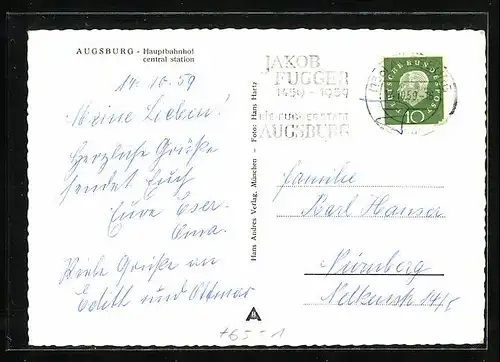 AUGSBURG - Hauptbahnhof
central station
14.10.59
Meine Lieben!
Herzliche Grüße
sendet Euch
Eure
Oma.
Viele Grüße an
Edith und Ottmar
Hans Andres Verlag, München - Foto: Hans Hartz
JAKOB
FUGGER
1459 - 1959
DIE FUGGERSTADT
AUGSBURG
DEUTSCHE BUNDESPOST
10
Familie
Karl Hauser
Nürnberg
Nelkenstr 14/I
+65-1